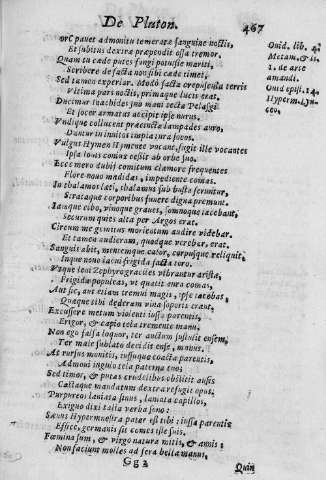 De Pluton.
467
orC pauet admonitu temeratæ sanguine noctis,
Et subitus dextræ præpedit ossa tremor.
Quam tu cæde putes fungi potuisse mariti,
Scribere de facta non sibi cæde timet,
Sed tamen experiar. Modò facta crepuscula terris
Vltima pars noctis, primaque lucis erat.
Ducimur Inachides sub tecta Pelasgi
Et socer armatas accipit ipse nurus.
Vndique collucent præcinctæ lampades auro,
Dantur in inuitos impia tura focos.
Vulgus Hymen Hymenæe vocant, fugit ille vocantes
Ipsa Iouis coniux cessit ab orbe suo.
Ecce mero dubij comitum clamore frequentes
Flore nouo madidas, impediente comas.
In thalamos læti, thalamus sub busta feruntur,
Strataque corporibus funere digna premunt.
Iamque cibo, vinoque graues, somnoque iacebant,
Securum quies alta per Argos erat.
Circum me gemitus morientum audire videbar.
Et tamen audieram, quodque verebar, erat.
Sanguis abit, mentemque calor, corpusque reliquit,
Inque nouo iacui frigida facta toro.
Vt que leni Zephyro graciles vibrantur aristæ,
Frigida populeas, vt quatit aura comas,
Aut sic, aut etiam tremui magis, ipse iacebas,
Quaque tibi dederam vina soporis erant.
Excussere metum violenti iussa parentis,
Erigor, & capio tela tremente manu.
Non ego falsa loquor, ter acutum sustulit ensem,
Ter male sublato decidit ense, manus.
At rursus monitis, iussuque coacta parentis,
Admoui iugulo tela paterna tuo.
Sed timor, & pietas crudelibus obstitit ausis
Castaque mandatum dextra refugit opus.
Purpureos laniata sinus, laniata capillos,
Exiguo dixi talia verba sono:
Sæuus Hypermnestra pater est tibi: iussa parentis
Effice, germanis sit comes ille suis.
Fœmina sum, & virgo natura mitis, & annis:
Non faciunt molles ad fera bella manus,
Ouid. lib. 4.
Metam. & li.
1. de arte
amandi.
Ouid epist. 14
Hyperm. Lyn-
ceo.
Gg 2
Quin